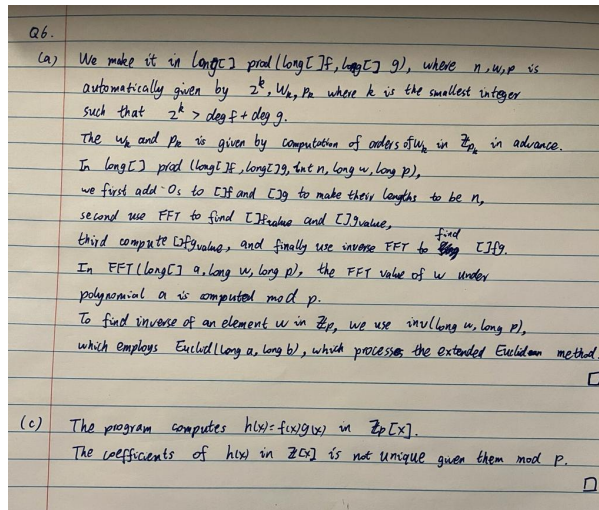 Q6.
(a) We make it in long[] prod (long[]f, long[] g), where n, w, p is
automatically given by 2^k, W_k, P_k where k is the smallest integer
such that 2^k > deg f + deg g.
The w_k and p_k is given by computation of orders of w_k in ℤ_{p_k} in advance.
In long[] prod (long[]f, long[]g, int n, long w, long p),
we first add 0s to []f and []g to make their lengths to be n,
second use FFT to find []fvalue and []gvalue,
third compute []fgvalue, and finally use inverse FFT to find []fg.
In FFT(long[] a, long w, long p), the FFT value of w under
polynomial a is computed mod p.
To find inverse of an element w in ℤ_p, we use inv(long w, long p),
which employs Euclid(long a, long b), which processes the extended Euclidean method.
□
(c) The program computes h(x)=f(x)g(x) in ℤ_p[x].
The coefficients of h(x) in ℤ[x] is not unique given them mod p.
□